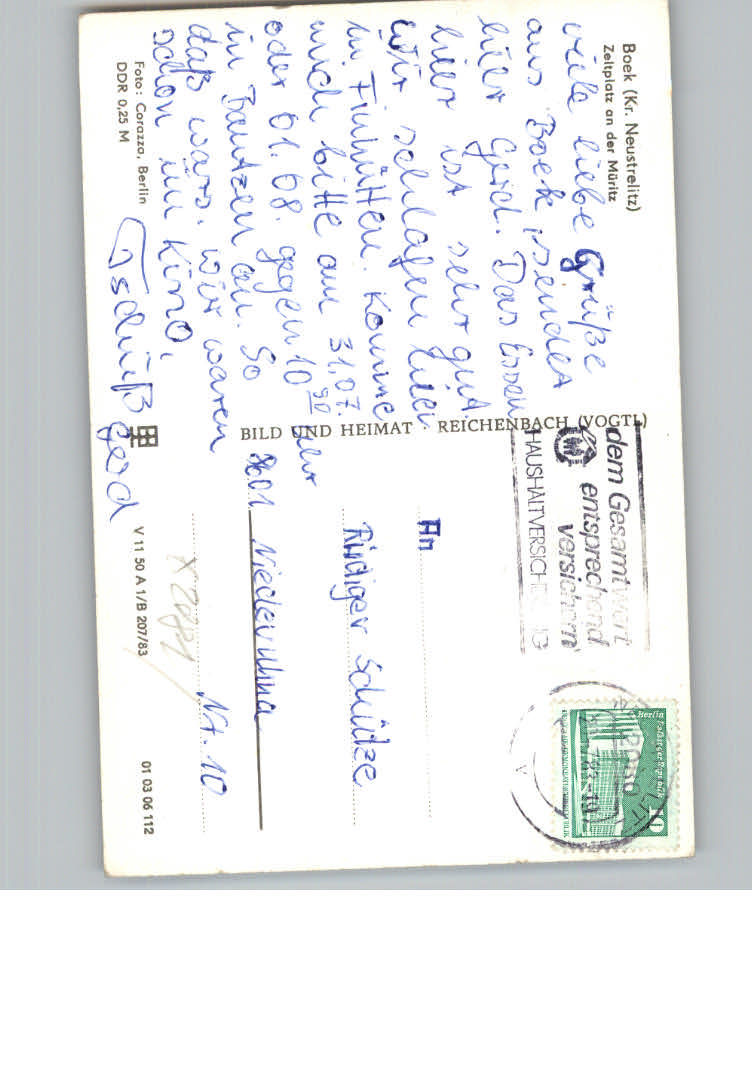 Boek (Kr. Neustrelitz)
Zeltplatz an der Müritz
viele liebe Grüße
aus Boek sendet
hier Gerd. Das Essen
hier ist sehr gut.
Wir schlafen hier
in Finnhütten. Komme
mich bitte am 31.07.
oder 01.08. gegen 10 30 Uhr
in Bautzen an. So
daß wärs. wir waren
schon im Kino.
Tschüß Gerd
Foto: Corazza, Berlin
DDR 0,25 M
BILD UND HEIMAT · REICHENBACH (VOGTL)
V 11 50 A 1/B 207/83
01 03 06 112
dem Gesamtwert
entsprechend
versichern
HAUSHALTVERSICHERUNG
Berlin
Palast der Republik
10
An
Rüdiger Schütze
8601 Niederuhna
Nr. 10